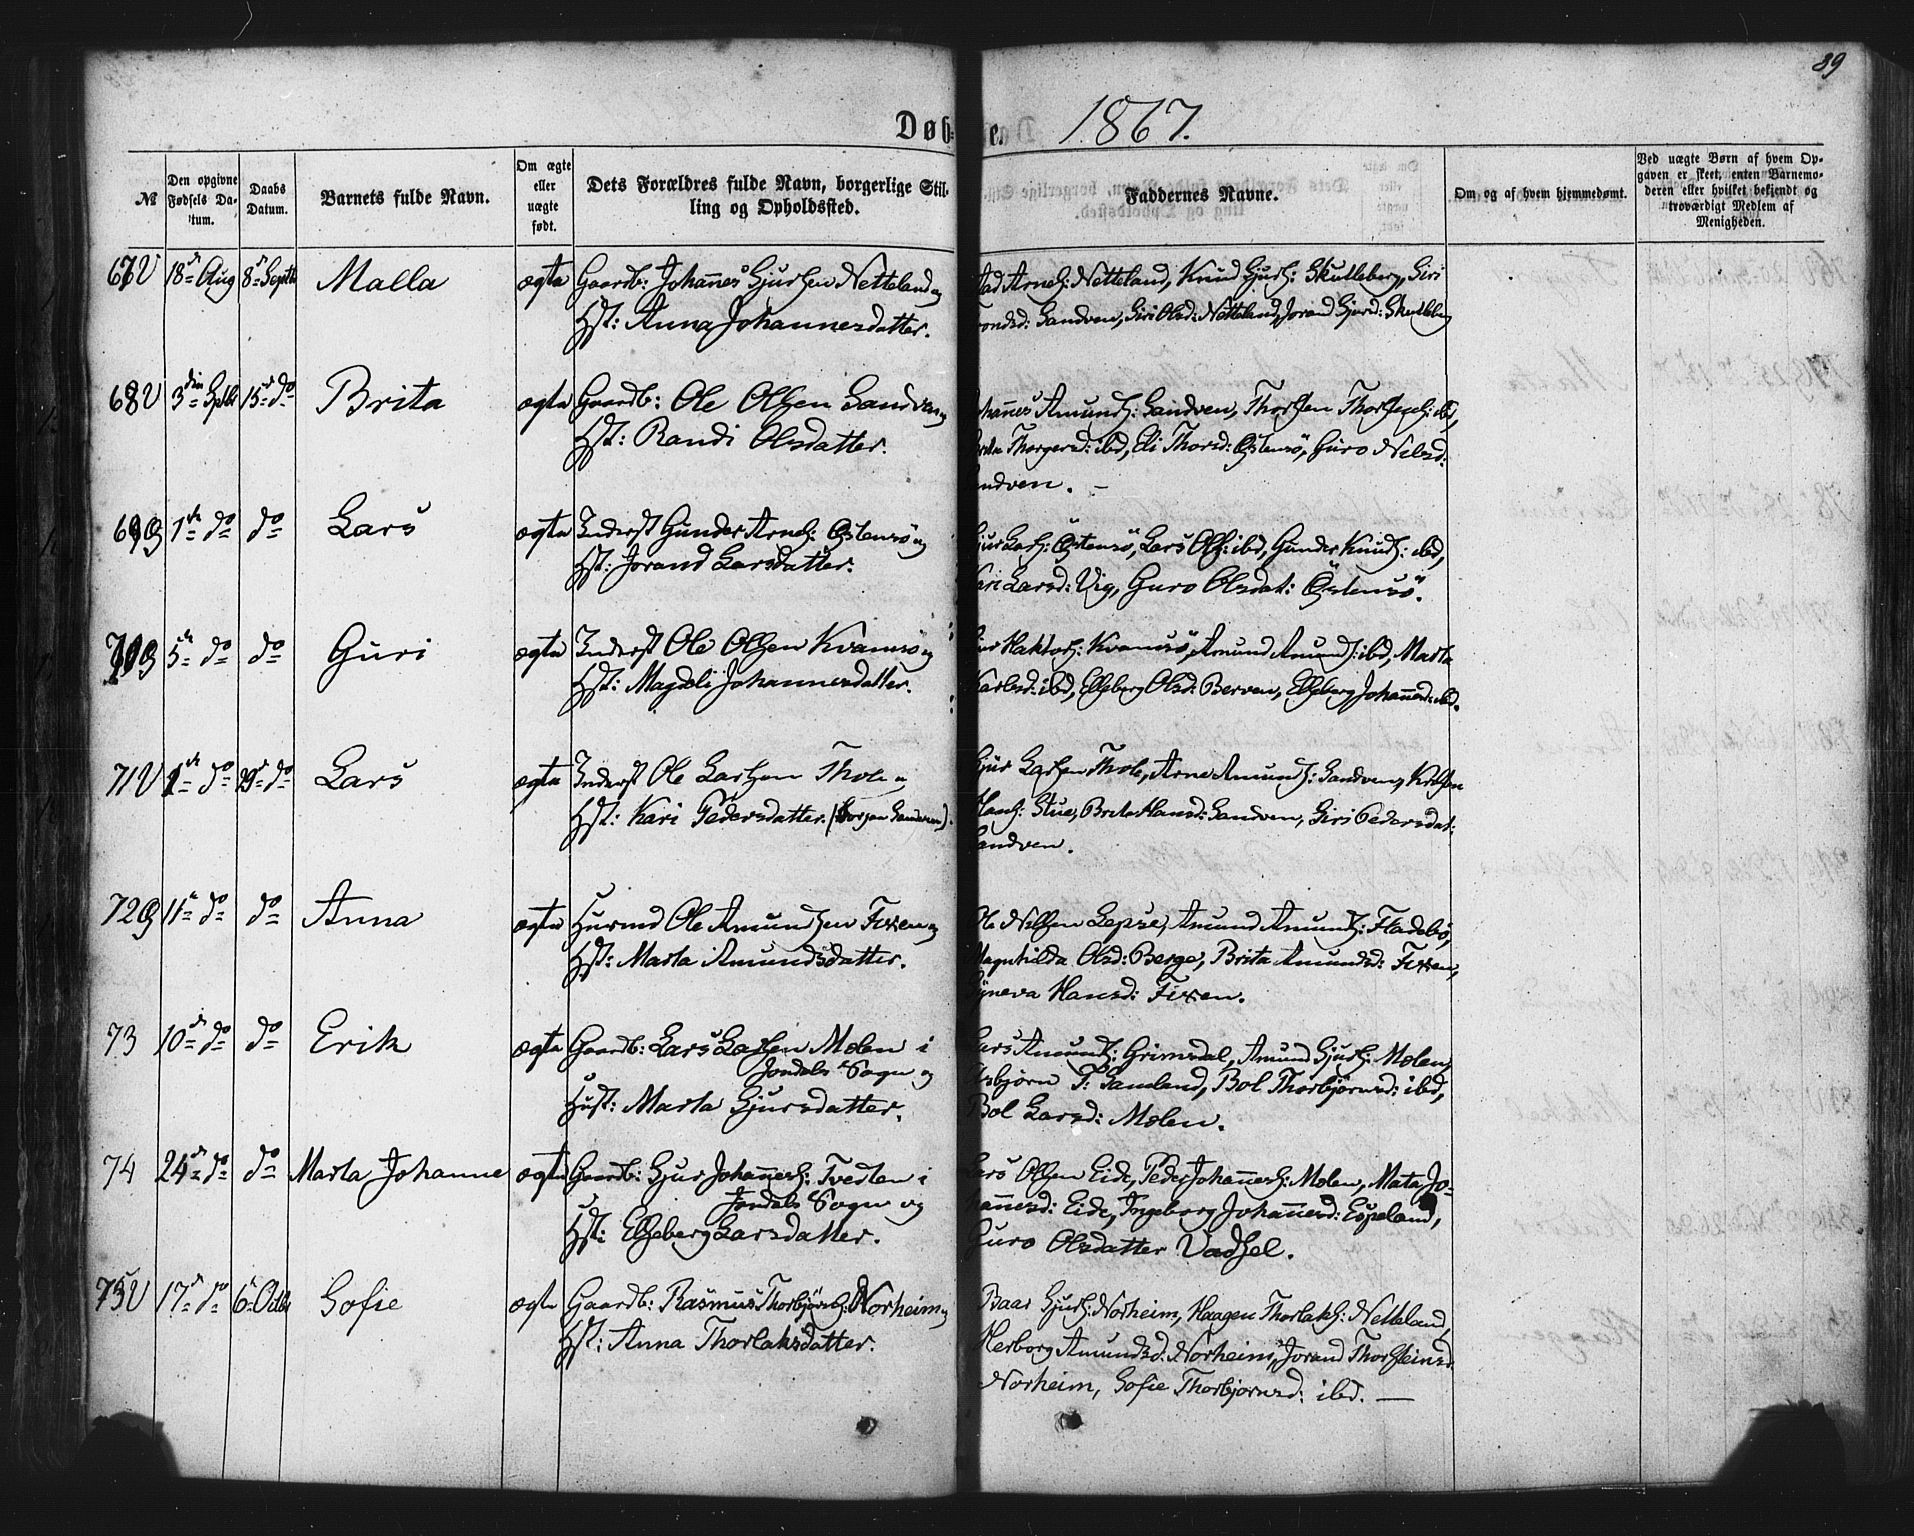 89
Døbte. 1867.
№ | Den opgivne Fødsels Datum. | Daabs Datum. | Barnets fulde Navn. | Om ægte eller uægte født. | Dets Forældres fulde Navn, borgerlige Stilling og Opholdssted. | Faddernes Navne. | Om og af hvem hjemmedømt. | Ved uægte Børn af hvem Opgaven er skeet, enten Barnemoderen eller hvilket bekjendt og troværdigt Medlem af Menigheden.
67 V 18de Aug 8de Septbr Malla ægte Gaardb: Johannes Sjurssen Netteland og
Hst: Anna Johannesdatter.
Arnes: Netteland, Knud Sjurs: Skutleberg, Siri
Sandven, Siri Olsd: Netteland, Jorand Sjursd: Skutleberg
68 V 3die Septbr 15de do Brita ægte Gaardb: Ole Olssen Sandven og
Hst: Randi Olsdatter.
Johannes Amunds: Sandven, Thorsten Thorstens: ibd,
Brita Thorgersd: ibd, Eli Thorsd: Østensö, Guro Nilsd:
Sandven. —
69 Ø 1ste do do Lars ægte Inderst Gunder Arnes: Østensö og
Hst: Jorand Larsdatter.
Sjur Lars: Østensö, Lars Ols: ibd, Gunder Knuds: ibd,
Kari Larsd: Vig, Guro Olsdat: Östensö.
70 Ø 5te do do Guri ægte Inderst Ole Olssen Kvamsö og
Hst: Magdeli Johannesdatter.
Haktors: Kvamsö, Amund Amunds: ibd, Marta
Karlsd: ibd, Elseberg Olsd: Berven, Elseberg Johannesd: ibd.
71 V 1ste do 29de do Lars ægte Inderst Ole Larssen Thole og
Hst: Kari Pedersdatter.
Sjur Larssen Thole, Arne Amunds: Sandven,
Hans: Stue, Brita Hansd: Sandven, Siri Pedersdat:
Sandven.
72 Ø 11te do do Anna ægte Huusmd Ole Amundssen Fixen og
Hst: Marta Amundsdatter.
Ole Nilssen Lepsø, Amund Amunds: Fladebø,
Magnhilda Olsd: Berge, Brita Amundsd: Fixen,
Syneva Hansd: Fixen.
73 10de do do Erik ægte Gaardb: Lars Larssen Molen i
Jondals Sogn og
Hust: Marta Sjursdatter.
Lars Amunds: Grimsdal, Amund Sjurs: Molen,
Asbjørn T: Samland, Bol Thorbjørnsd: ibd,
Bol Larsd: Molen.
74 24de do do Marta Johanne ægte Gaardb: Sjur Johannes: Tvedten i
Jondals Sogn og
Hst: Elseberg Larsdatter.
Lars Olssen Eide, Peder Johannes: Molen, Mata Jo-
hannesd: Eide, Ingeborg Johannesd: Espeland,
Guro Olsdatter Vadsel.
75 V 17de do 6te Octbr Sofie ægte Gaardb: Rasmus Thorbjørns: Norheim og
Hst: Anna Thorlaksdatter.
Baar Sjurs: Norheim, Haagen Thorlaks: Netteland,
Herborg Amundsd: Norheim, Jorand Thorsteinsd:
Norheim, Sofie Thorbjornsd: ibd. —